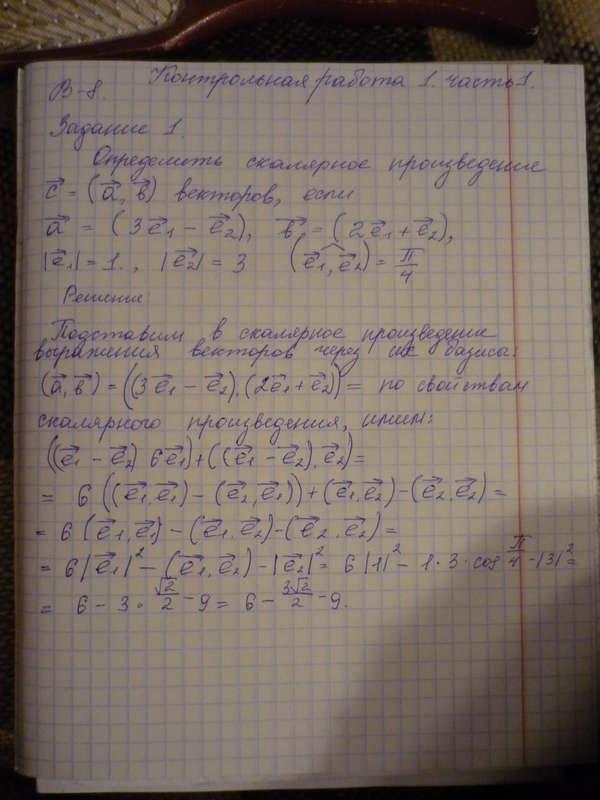 Контрольная работа 1. часть 1.
В-8.
Задание 1.
Определить скалярное произведение
c⃗ = (a⃗, b⃗) векторов, если
a⃗ = (3e⃗1 − e⃗2), b⃗ = (2e⃗1 + e⃗2),
|e⃗1| = 1., |e⃗2| = 3 (e⃗1, e⃗2) = π/4
Решение
Подставим в скалярное произведение
выражения векторов через их базиса:
(a⃗, b⃗) = ((3e⃗1 − e⃗2).(2e⃗1 + e⃗2)) = по свойствам
скалярного произведения, имеем:
((e⃗1 − e⃗2) 6e⃗1) + ((e⃗1 − e⃗2).e⃗2) =
= 6 ((e⃗1.e⃗1) − (e⃗2,e⃗1)) + (e⃗1.e⃗2) − (e⃗2.e⃗2) =
= 6 (e⃗1,e⃗1) − (e⃗1.e⃗2) − (e⃗2.e⃗2) =
= 6|e⃗1|² − (e⃗1,e⃗2) − |e⃗2|² = 6|1|² − 1·3·cos π/4 − |3|² =
= 6 − 3 · √2/2 − 9 = 6 − 3√2/2 − 9.